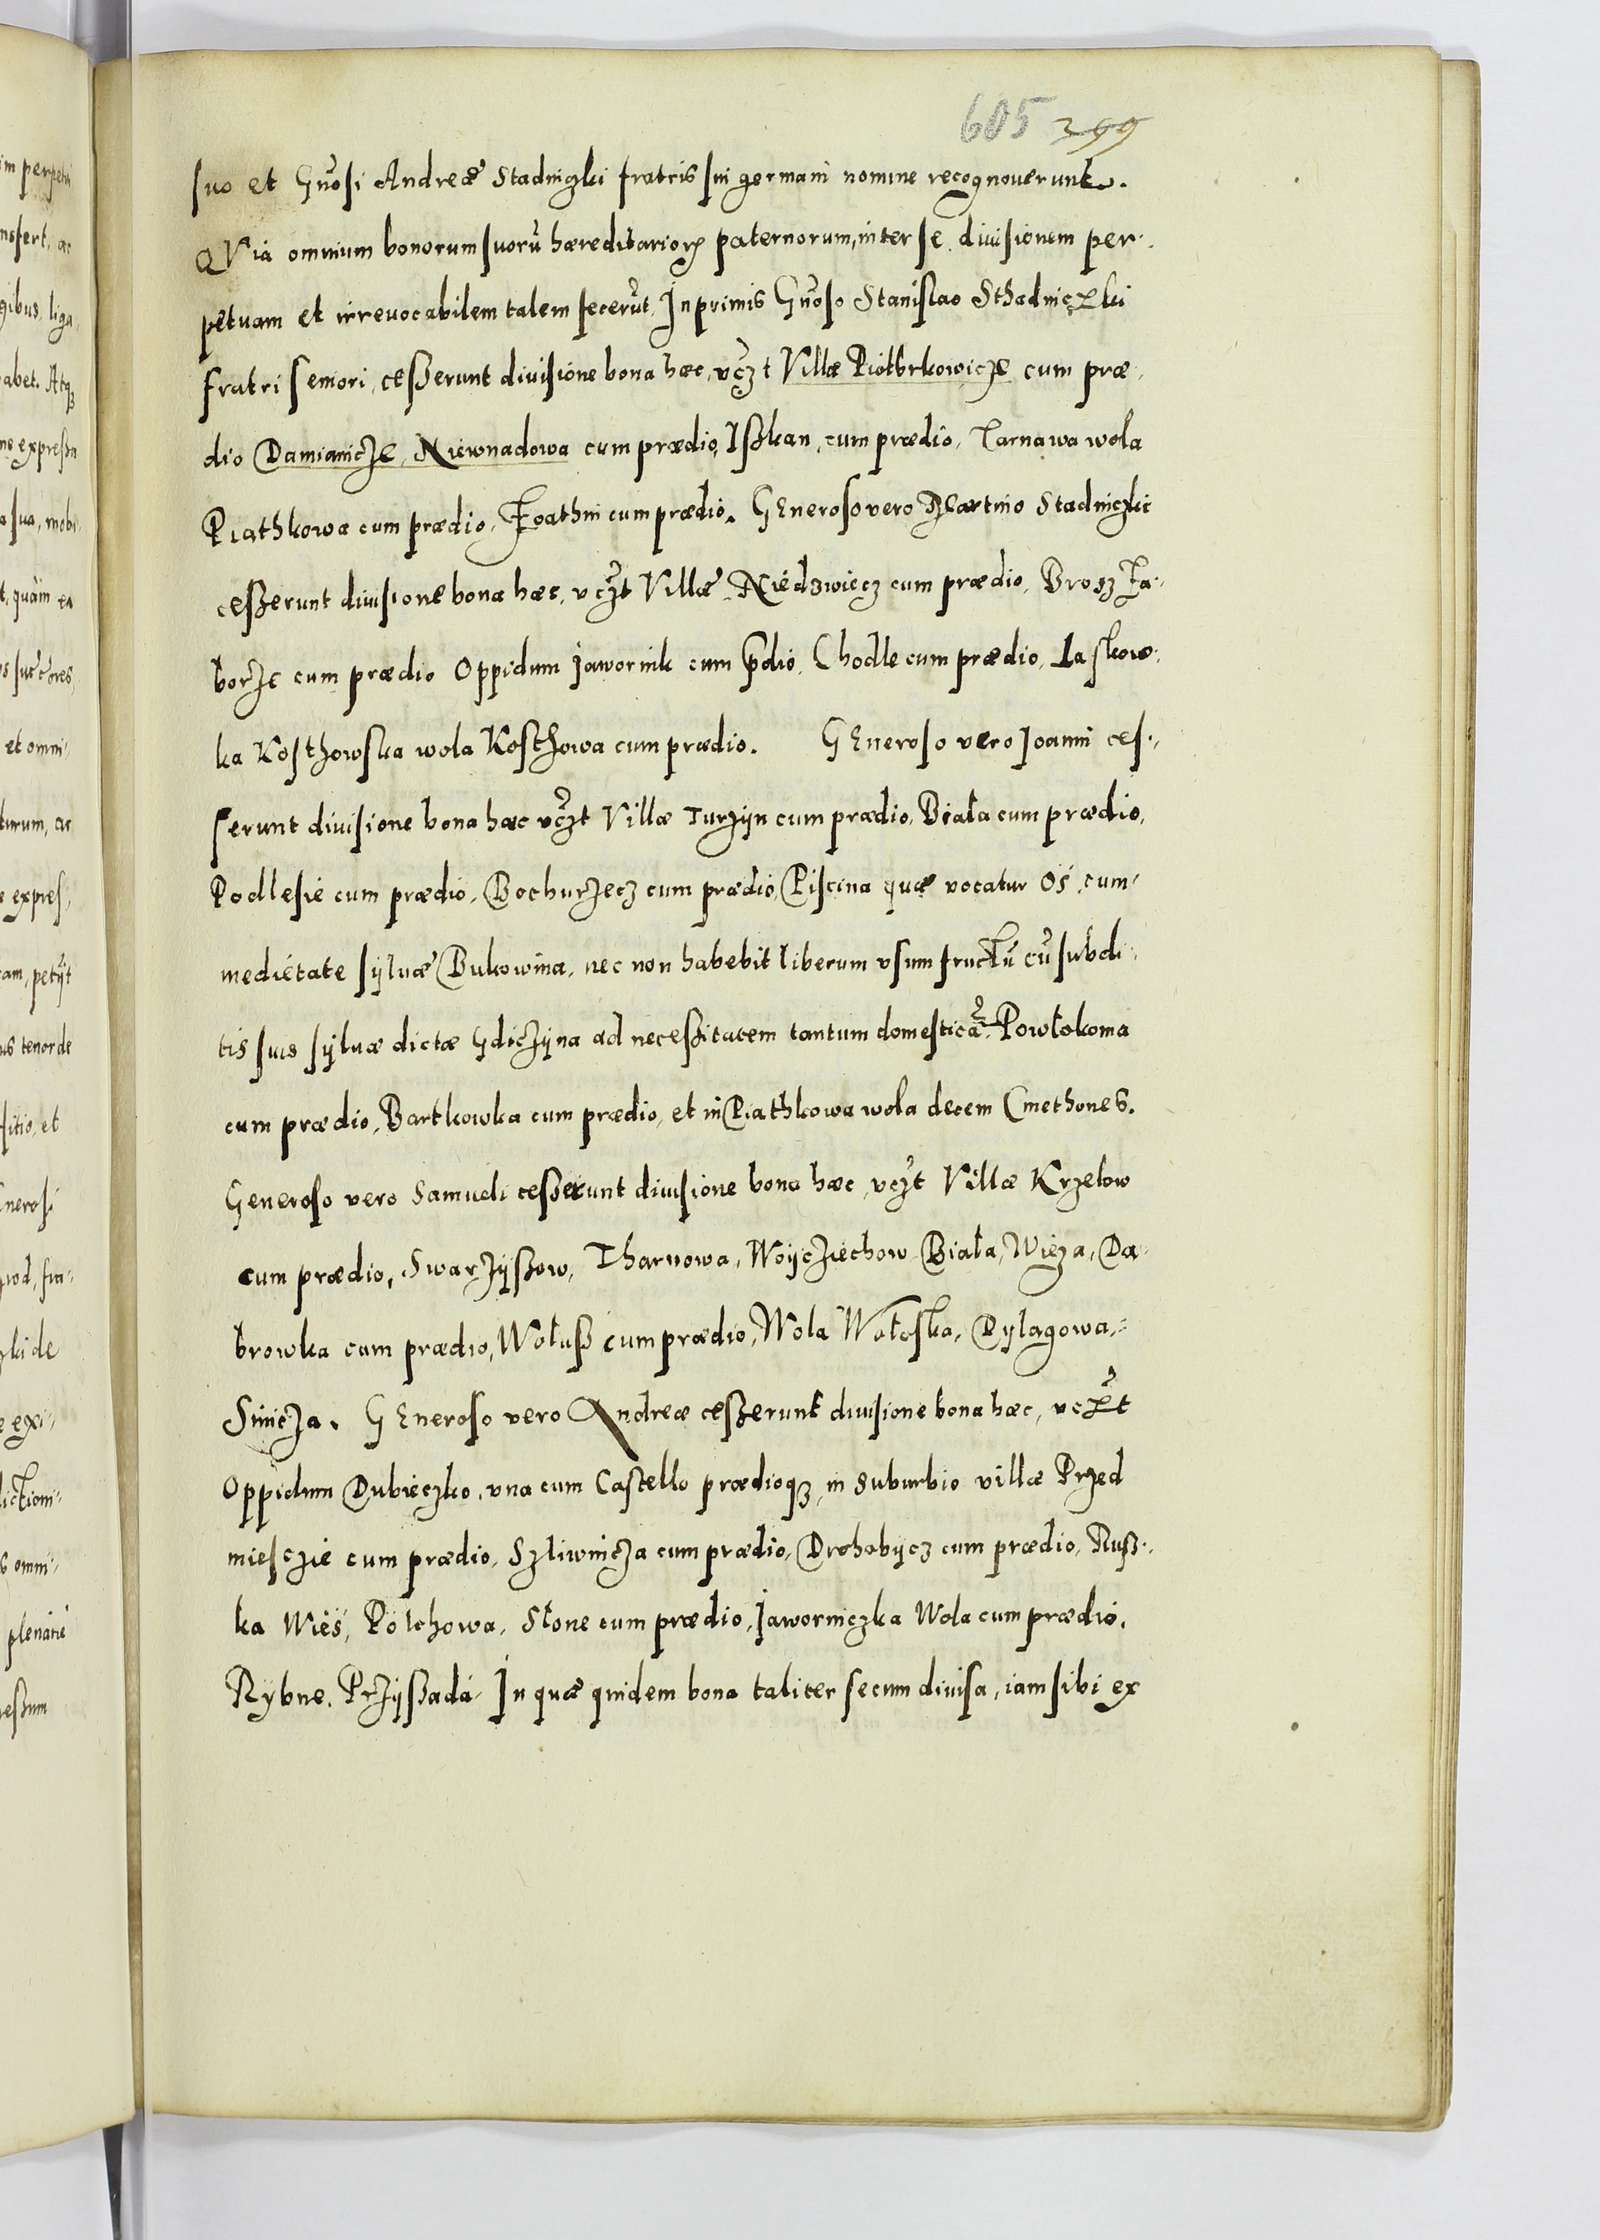 605 399
suo et Gnosi Andreæ Stadniczki fratris sui germani nomine recognouerunt.
QVia omnium bonorum suorũ hæreditarioꝝ paternorum, inter se diuisionem per-
petuam et irreuocabilem talem fecerũt. Inprimis Gnoso Stanislao Sthadniczki
fratri seniori, ceßerunt diuisione bona hæc, vczt Villæ Piotbrkowicze cum præ-
dio Damianicze, Niewnadowa cum prædio, Ißkan, cum prædio, Tarnawa wola
Piathkowa cum prædio, cum prædio. GEneroso vero Martino Stadniczki
ceßerunt diuisione bona hæc, vczt Villæ Niedzwiecz cum prædio, Brosz Ta-
borze cum prædio Oppidum Jawornik cum p̃dio, Chodle cum prædio, Laskow-
ka Kosthowska wola Kosthowa cum prædio. GEneroso vero Joanni ces-
serunt diuisione bona hæc vczt Villæ Turzyn cum prædio, Biała cum prædio,
Podlesie cum prædio, Bochurzecz cum prædio, Piscina quæ vocatur Oś, cum
medietate syluæ Bukowina, nec non habebit liberum vsum fructũ cũ subdi-
tis suis syluæ dictæ Gdiczyna ad neceßitatem tantum domesticã. Powłokoma
cum prædio, Bartkowka cum prædio, et in Piathkowa wola decem Cmethones.
Generoso vero Samueli ceßerunt diuisione bona hæc, vczt Villæ Krzelow
cum prædio, Swarzyßow, Tharnowa, Woyciechow Biała, Wieza, Da-
browka cum prædio, Wołuß cum prædio, Wola Wołoska, Dylagowa,
Sinicza. GEneroso vero Andreæ ceßerunt diuisione bona hæc, vczt
Oppidum Dubieczko, vna cum Castello prædioqꝫ, in suburbio villæ Przed
miesczie cum prædio, Szliwnicza cum prædio, Drohobycz cum prædio, Ruß-
ka Wieś, Potchowa, Słone cum prædio, Jaworniczka Wola cum prædio,
Rybne, Przyßada. In quæ quidem bona taliter secum diuisa, iam sibi ex